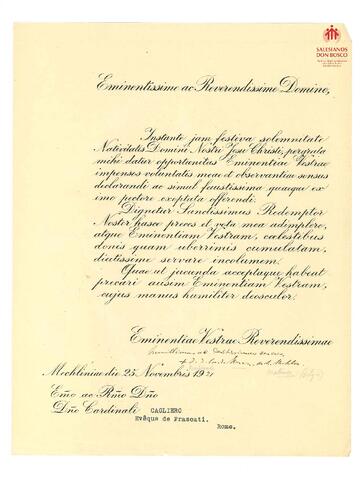 SALESIANOS
DON BOSCO
Eminentissime ac Reverendissime Domine,
Instante jam festiva solemnitate
Nativitatis Domini Nostri Jesu Christi, pergrata
mihi datur opportunitas Eminentiae Vestrae
impensos voluntatis meae et observantiae sensus
declarandi ac simul faustissima quaeque ex
imo pectore exoptata offerendi.
Dignetur Sanctissimus Redemptor
Noster hasce preces et vota mea adimplere,
atque Eminentiam Vestram, coelestibus
donis quam uberrimis cumulatam,
diutissime servare incolumem.
Quae ut jucunda acceptaque habeat
precari ausim Eminentiam Vestram,
cujus manus humiliter deosculor.
Eminentiae Vestrae Reverendissimae
Mechliniae die 25 Novembris 1921
Emo ac Rmo Dno
Dno Cardinali CAGLIERO
Evêque de Frascati.
Rome.